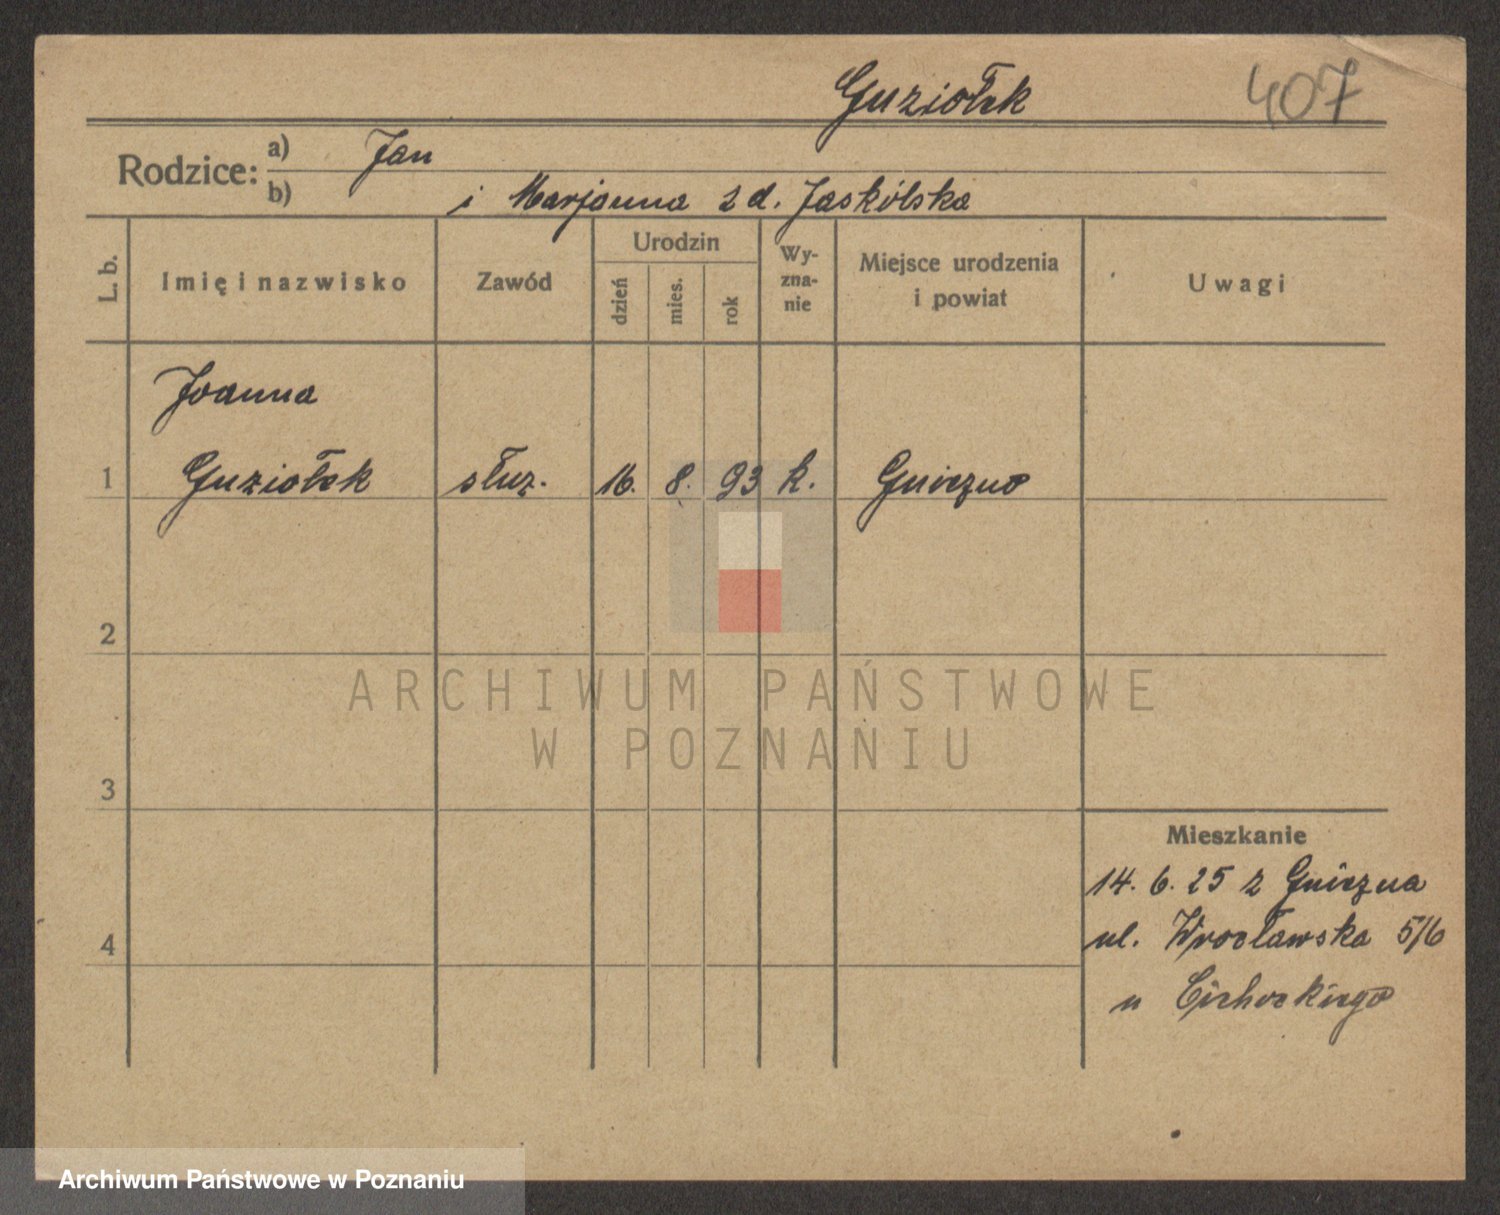 Guziołek 407
Rodzice: a) Jan
b) i Marjanna z d. Jaskólska
L. b. Imię i nazwisko Zawód Urodzin dzień mies. rok Wy-zna-nie Miejsce urodzenia i powiat Uwagi
Joanna
1 Guziołek służ. 16. 8. 93 k. Gniezno
2
ARCHIWUM PAŃSTWOWE
W POZNANIU
3
Mieszkanie
14. 6. 25 z Gniezna
4 ul. Wrocławska 5/6
u Cichockiego
Archiwum Państwowe w Poznaniu